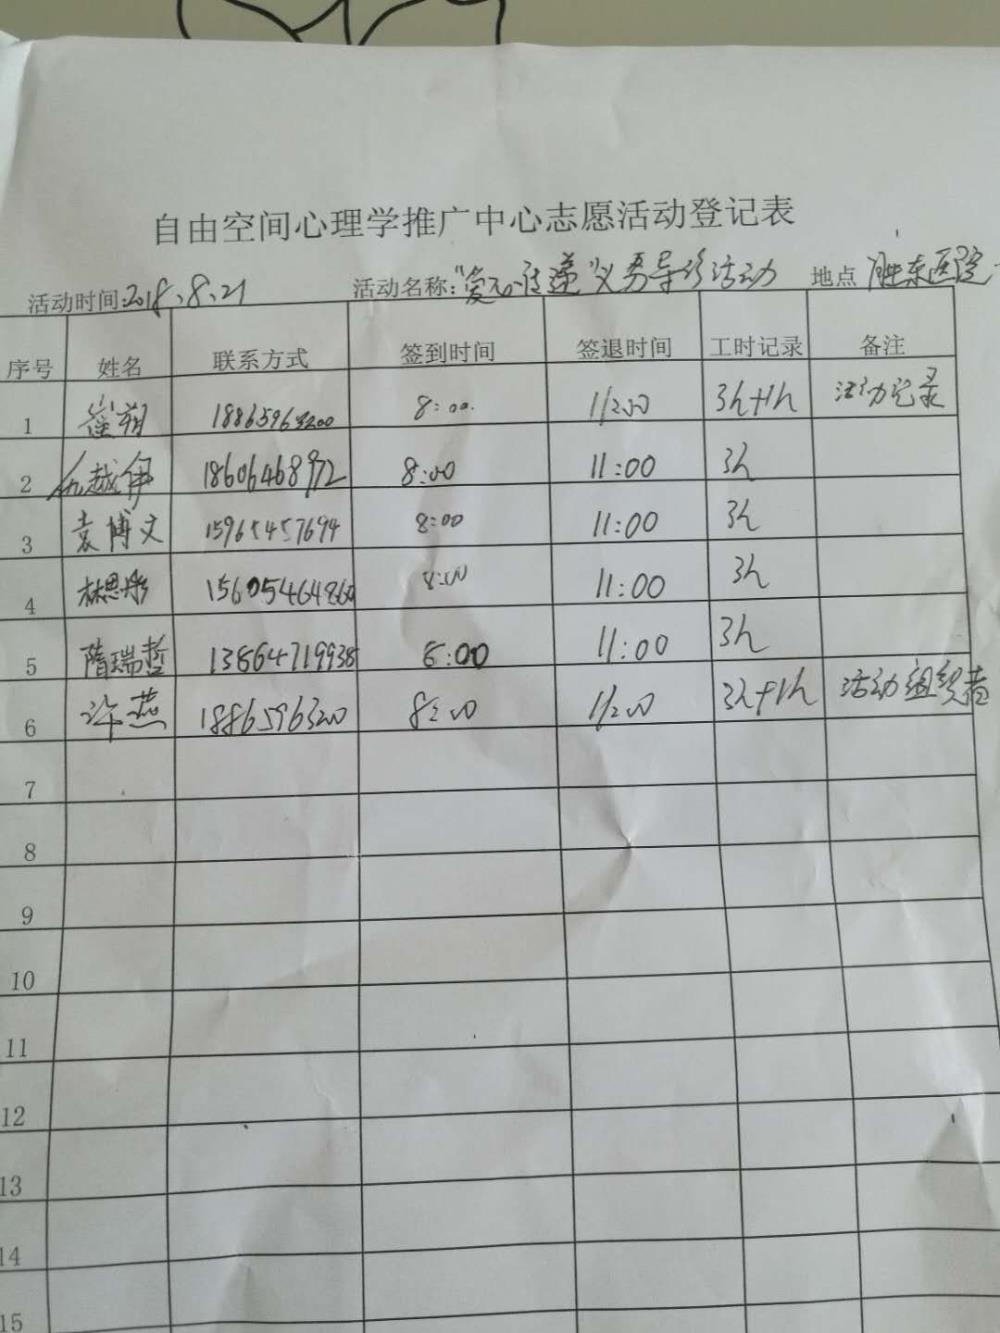 自由空间心理学推广中心志愿活动登记表
活动时间:2018.8.21 活动名称:“爱心传递”义务导诊活动 地点 胜东医院
序号 姓名 联系方式 签到时间 签退时间 工时记录 备注
1 崔朔 8:00 11:00 3h+1h 活动记录
2 越伊 18606468972 8:00 11:00 3h
3 袁博文 15965457694 8:00 11:00 3h
4 林思彤 15605464860 8:00 11:00 3h
5 隋瑞哲 13864719938 8:00 11:00 3h
6 许燕 1886596320 8:00 11:00 3h+1h 活动组织者
7
8
9
10
11
12
13
14
15